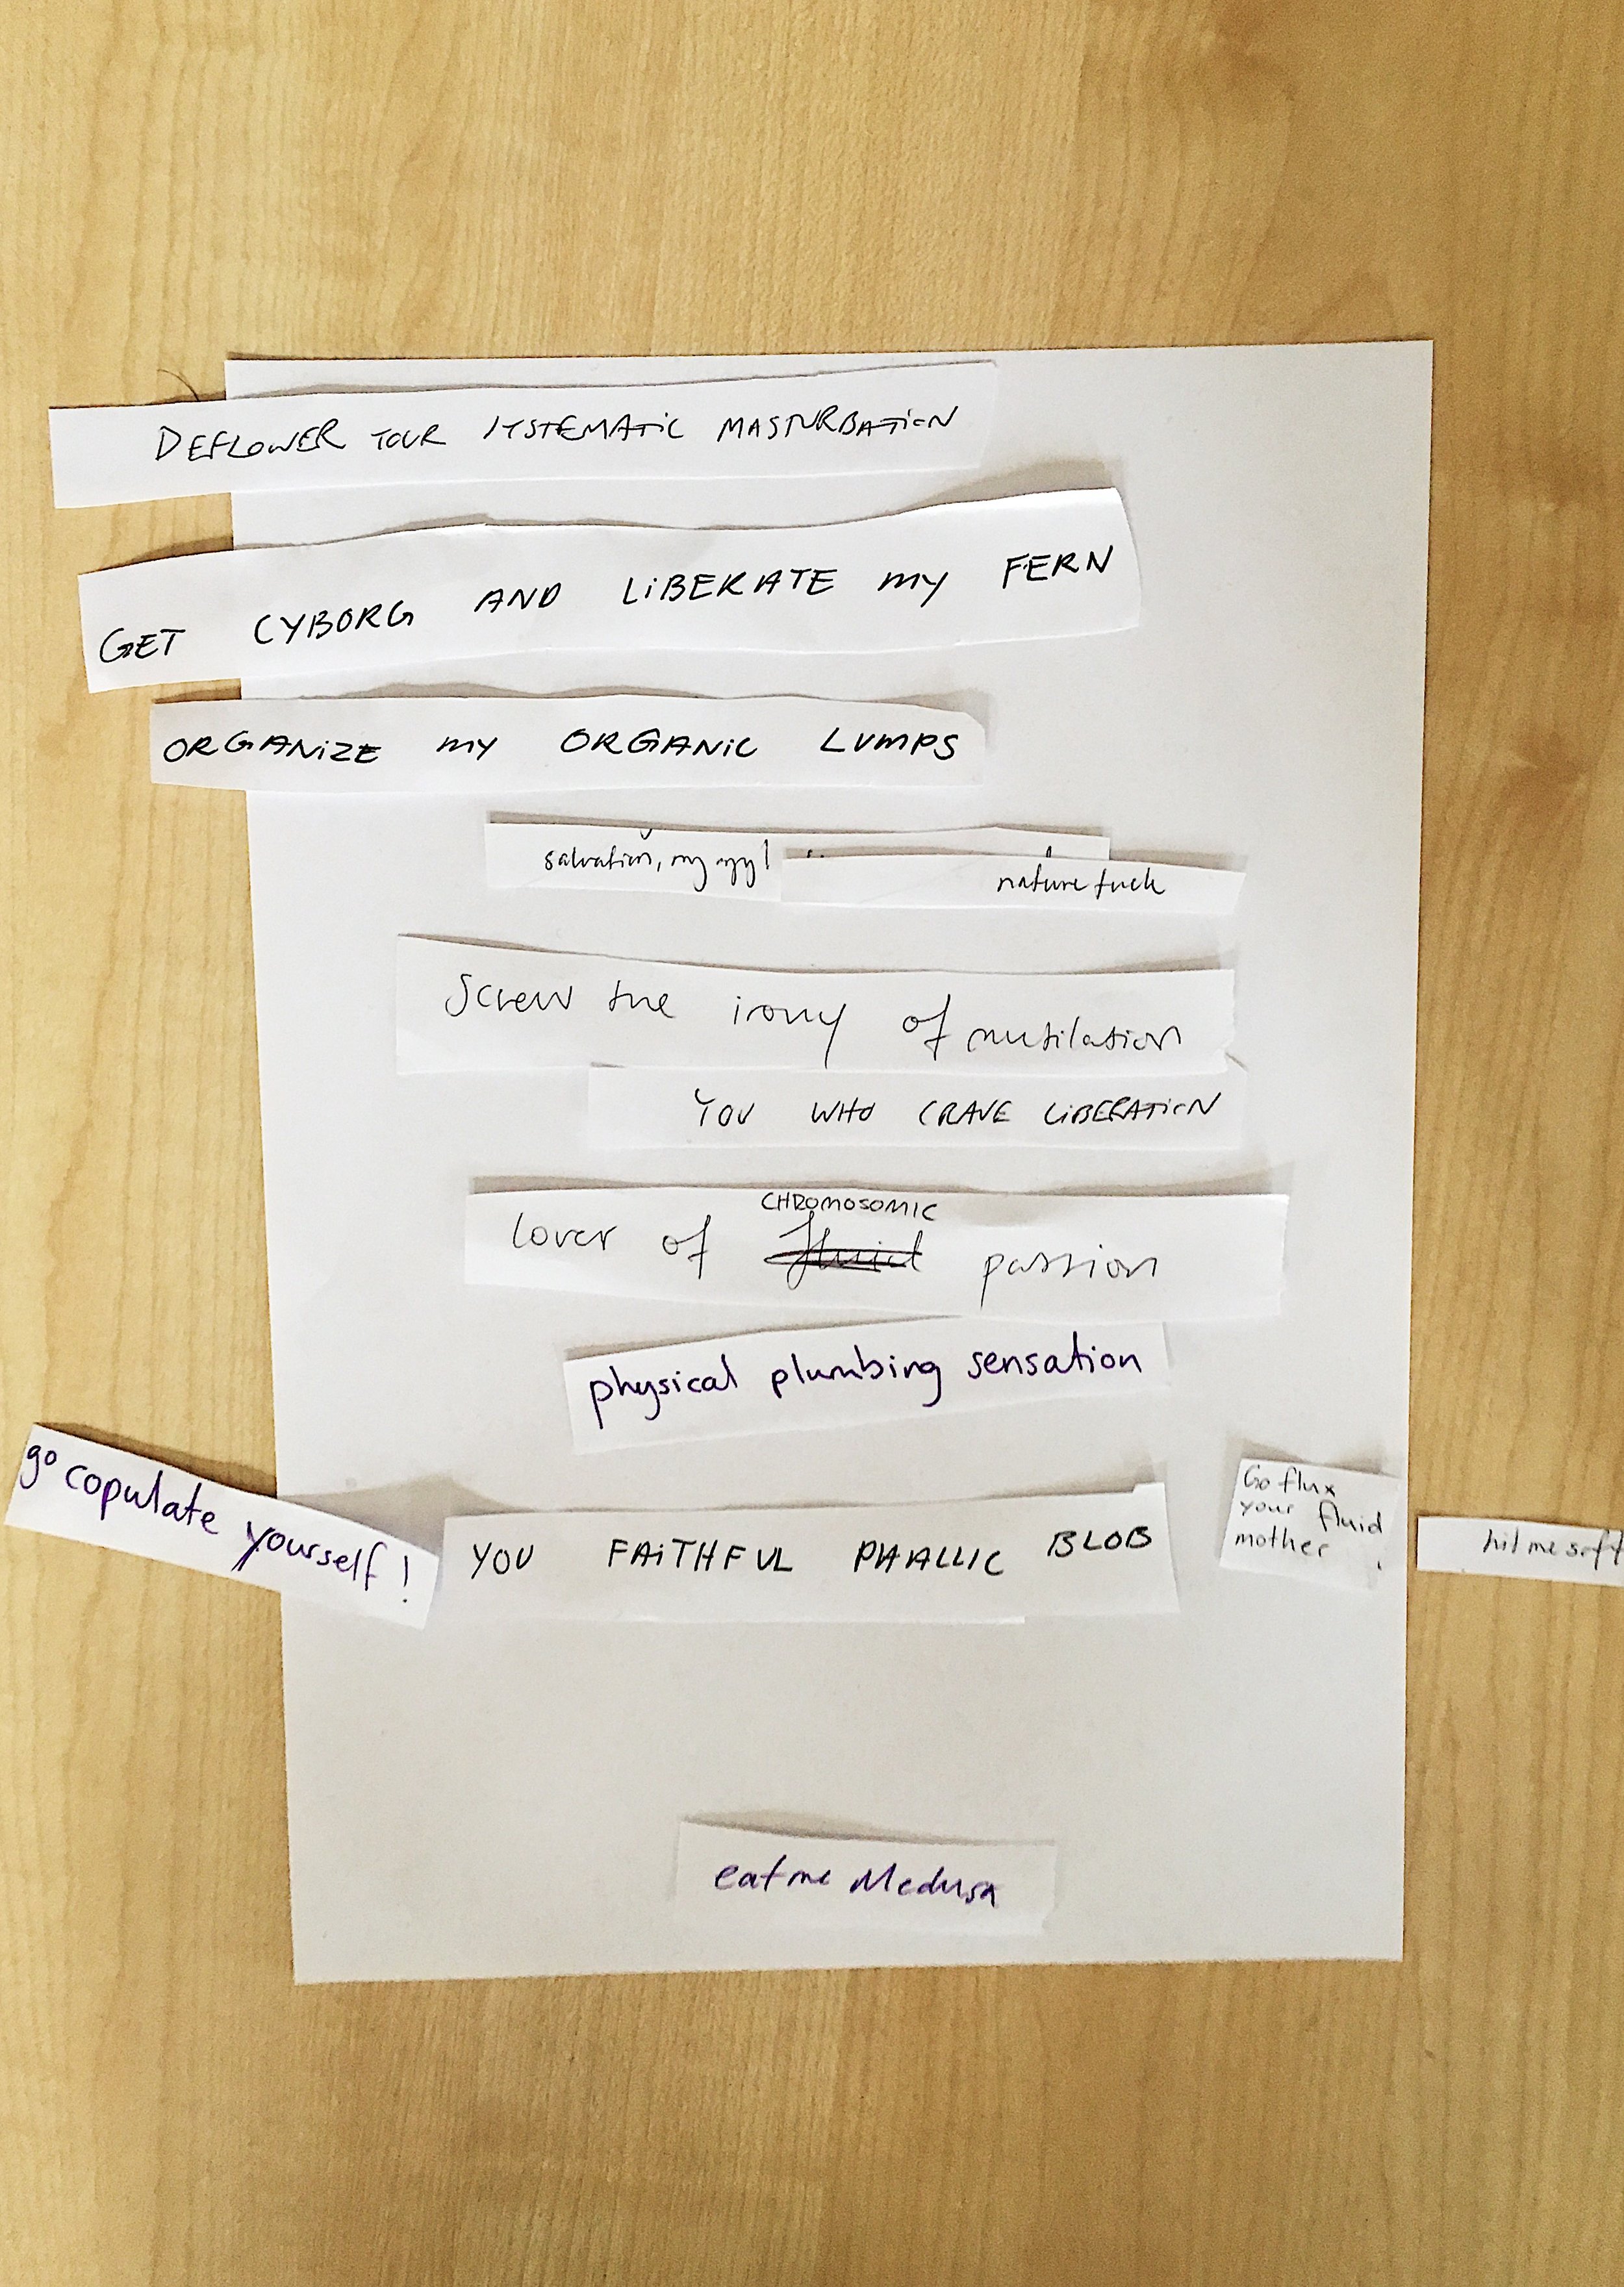 DEFLOWER YOUR SYSTEMATIC MASTURBATION
GET CYBORG AND LIBERATE MY FERN
ORGANIZE MY ORGANIC LUMPS
salvation, my
nature fuck
Screw the irony of mutilation
YOU WHO CRAVE LIBERATION
CHROMOSOMIC
lover of fluid passion
physical plumbing sensation
go copulate yourself!
YOU FAITHFUL PHALLIC BLOB
Go flux
your fluid
mother
hit me soft
eat me Medusa